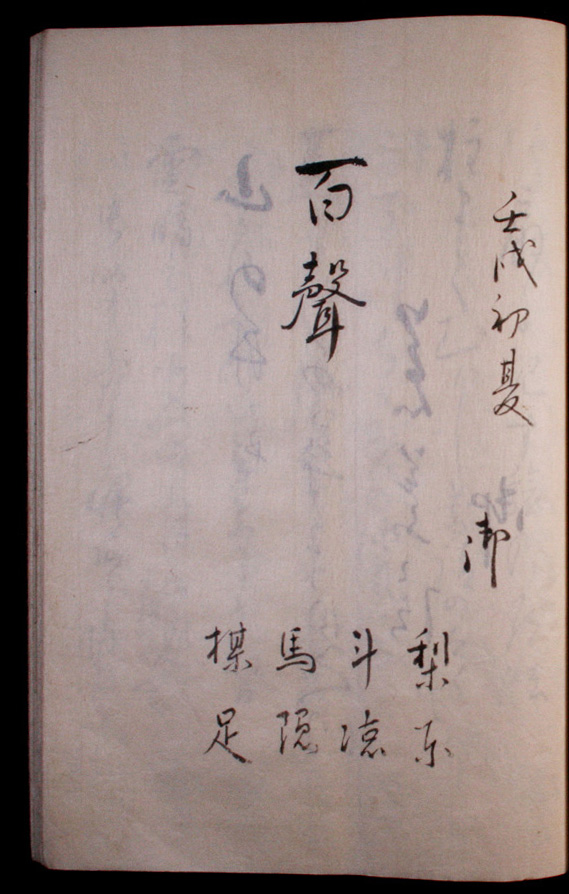 壬戌初夏
御
百聲
梨東
斗涼
馬隠
楳足